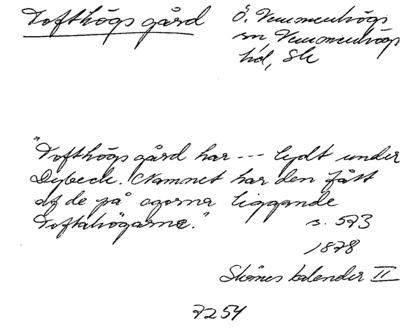 Tofthögs gård
Ö. Vemmenhögs
sn, Vemmenhögs
hd, Sk
"Tofthögs gård har --- lydt under
Dybeck. Namnet har den fått
af de på egorna liggande
Toftahögarne."
s. 573
1878
Skånes kalender II
7254